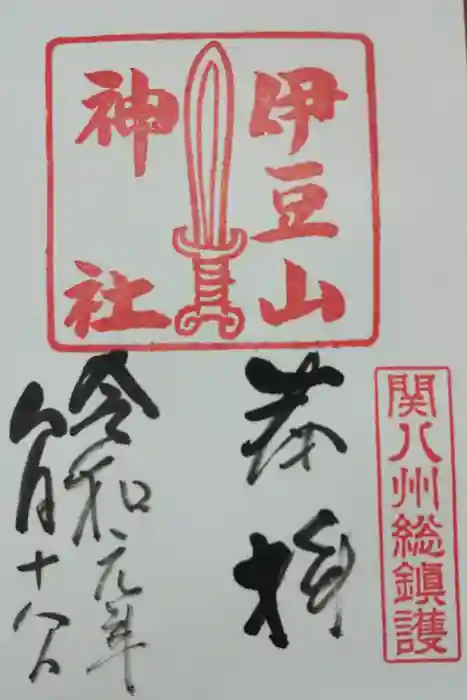 伊豆山
神社
関八州総鎭護
奉拝
令和元年
八月十八日